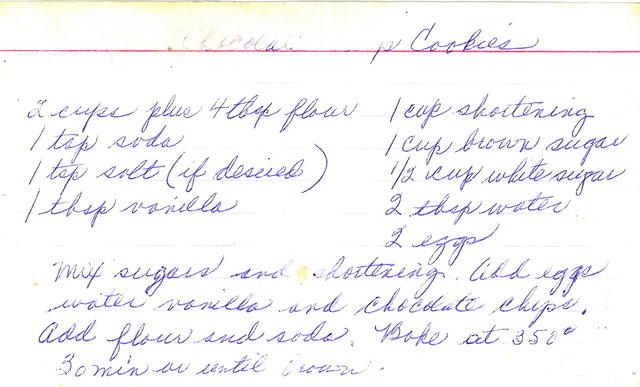 Chocolat p Cookies
2 cups plus 4 tbsp flour 1 cup shortening
1 tsp soda 1 cup brown sugar
1 tsp salt (if desired) 1/2 cup white sugar
1 tbsp vanilla 2 tbsp water
2 eggs
Mix sugars and shortening. Add eggs
water vanilla and chocolate chips.
Add flour and soda. Bake at 350°
30 min or until brown.